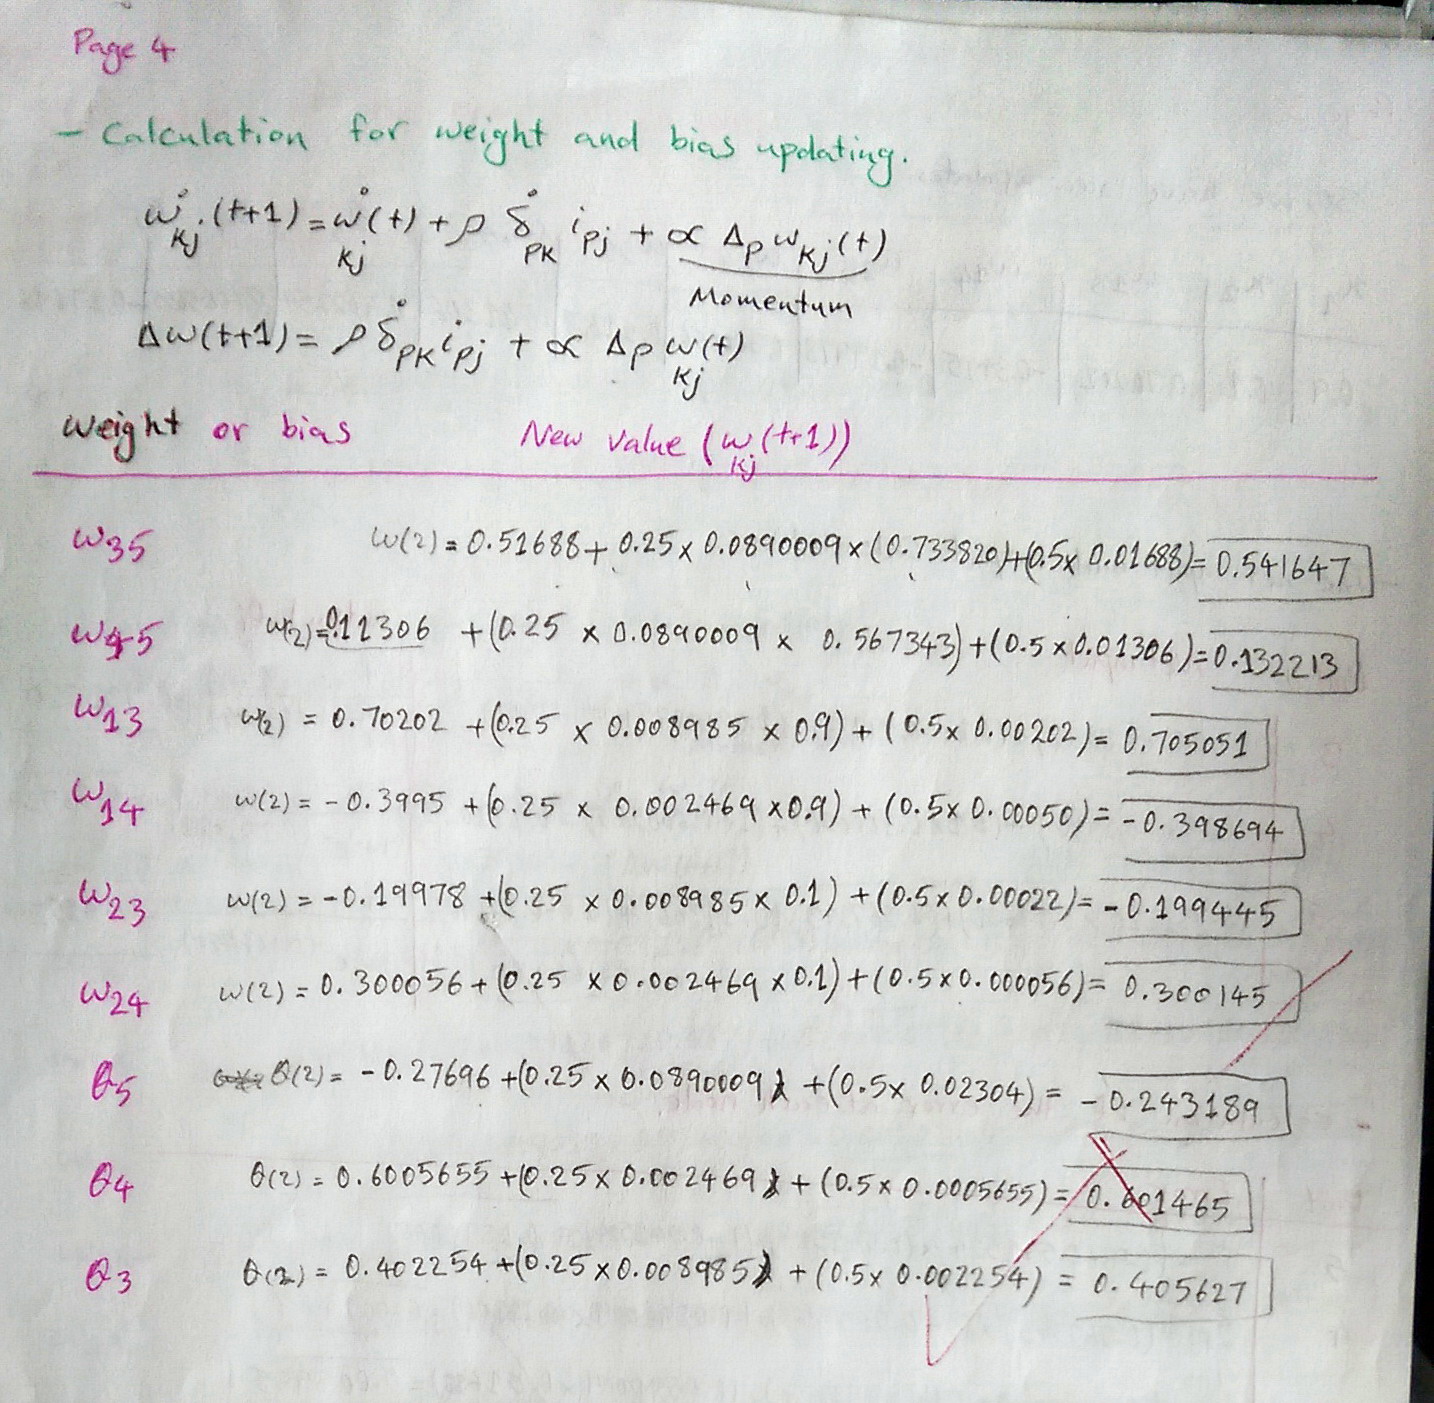 Page 4
- Calculation for weight and bias updating.
w_kj (t+1) = w_kj (t) + ρ δ_pk i_pj + α Δ_p w_kj (t)
Momentum
Δw(t+1) = ρ δ_pk i_pj + α Δ_p w_kj (t)
Weight or bias New value (w_kj (t+1))
w35 w(2) = 0.51688 + 0.25 x 0.0890009 x (0.733820) + (0.5 x 0.01688) = 0.541647
w45 w(2) = 0.11306 + (0.25 x 0.0890009 x 0.567343) + (0.5 x 0.01306) = 0.132213
w13 w(2) = 0.70202 + (0.25 x 0.008985 x 0.9) + (0.5 x 0.00202) = 0.705051
w14 w(2) = -0.3995 + (0.25 x 0.002469 x 0.9) + (0.5 x 0.00050) = -0.398694
w23 w(2) = -0.19978 + (0.25 x 0.008985 x 0.1) + (0.5 x 0.00022) = -0.199445
w24 w(2) = 0.300056 + (0.25 x 0.002469 x 0.1) + (0.5 x 0.000056) = 0.300145
θ5 θ(2) = -0.27696 + (0.25 x 0.0890009) + (0.5 x 0.02304) = -0.243189
θ4 θ(2) = 0.6005655 + (0.25 x 0.002469) + (0.5 x 0.0005655) = 0.601465
θ3 θ(2) = 0.402254 + (0.25 x 0.008985) + (0.5 x 0.002254) = 0.405627